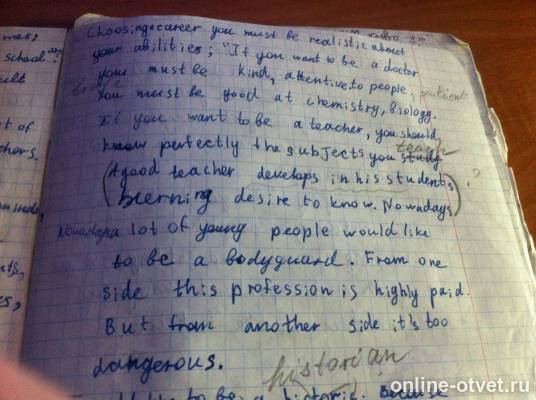 Choosing a career you must be realistic about
your abilities; "If you want to be a doctor
you must be kind, attentive to people, patient
You must be good at chemistry, biology.
If you want to be a teacher, you should
know perfectly the subjects you study teach
(A good teacher develops in his students ?
burning desire to know. Nowadays)
Nowadays a lot of young people would like
to be a bodyguard. From one
side this profession is highly paid.
But from another side it's too
dangerous.
historian
to be a historic. because
mes;
school
cult
t of
chers.
online-otvet.ru